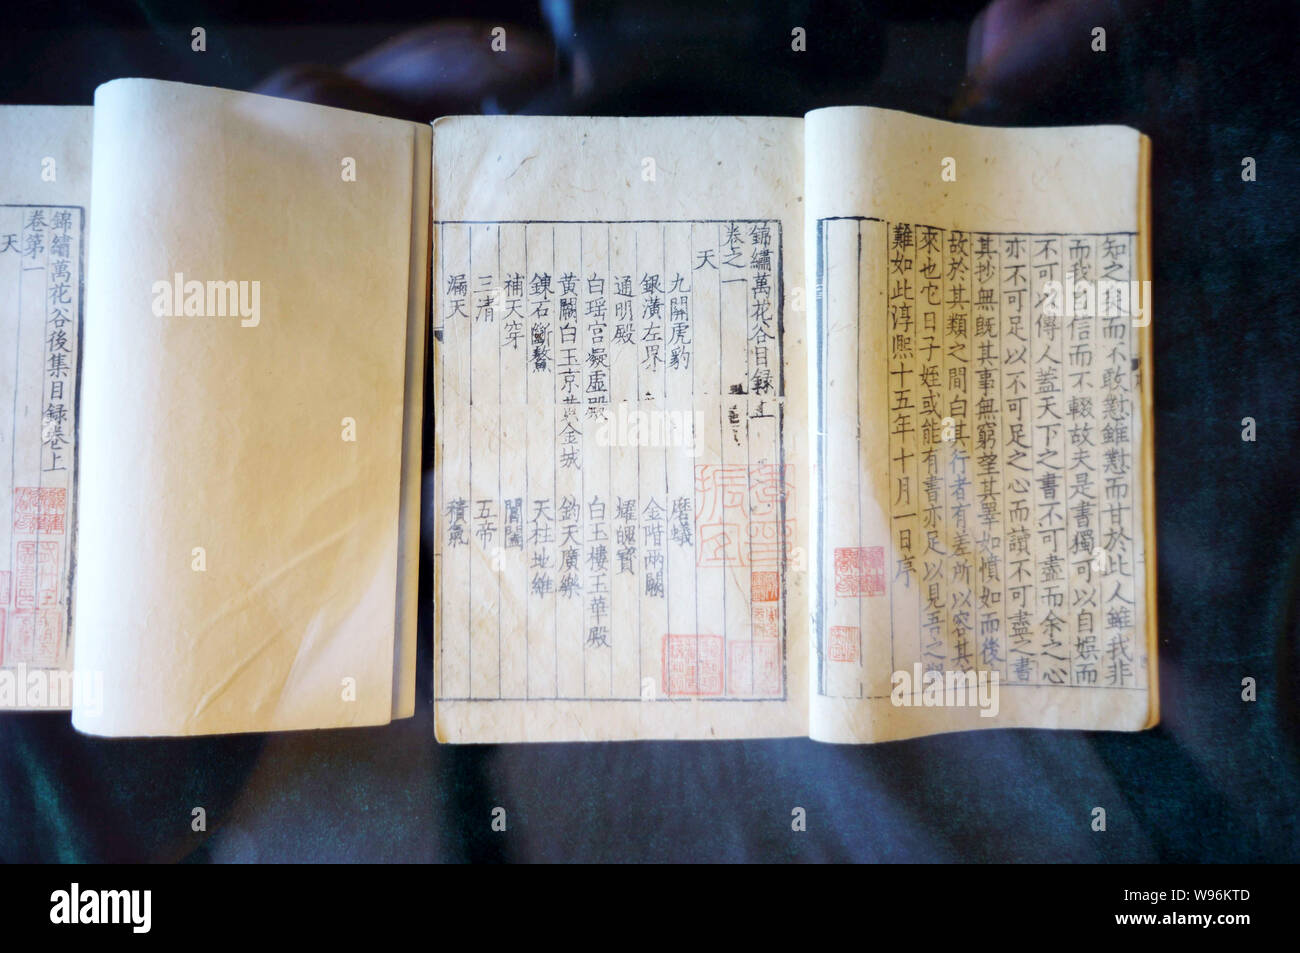 知之
而不敢懟雖懟而甘於此人雖我非
而我自信而不輟故夫是書獨可以自娛而
不可以傳人蓋天下之書不可盡而余之心
亦不可足以不可足之心而讀不可盡之書
其抄無既其事無窮望其畢如憤如而後
故於其類之間白其行者有差所以容其
來也它日子姪或能有書亦足以見吾之
難如此淳熙十五年十月一日序
錦繡萬花谷目錄
卷之一
天
九關虎豹
蟻
銀潢左界
金階兩闕
通明殿
耀魄寶
白瑶宮凝虛殿
白玉樓玉華殿
黃闕白玉京黃金城
鈞天廣樂
鍊石斷鰲
天柱地維
補天穿
閶闔
三清
五帝
漏天
積氣
錦繡萬花谷後集目録卷上
卷第一
天
alamy
alamy
Image ID: W96KTD
www.alamy.com